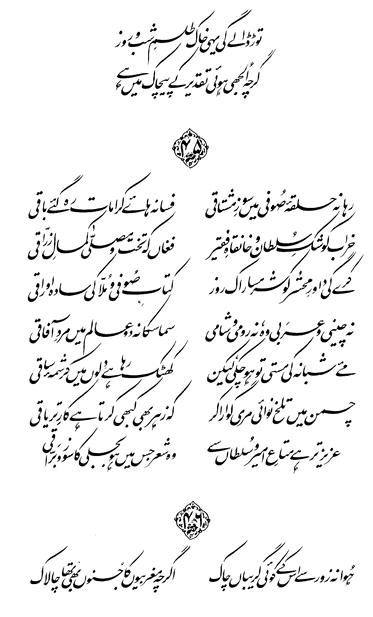 توڑ ڈالے گی یہی خاک طلسمِ شب و روز
گرچہ اُلجھی ہوئی تقدیر کے پیچاک میں ہے
۴۵
رہا نہ حلقۂ صُوفی میں سوزِ مشتاقی فسانہ ہائے کرامات رہ گئے باقی
خراب کوشکِ سُلطان و خانقاہِ فقیر فغاں کہ تخت و مصلّٰی کمالِ زرّاقی
کرے گی داورِ محشر کو شرمسار اک روز کتابِ صُوفی و مُلّا کی سادہ اوراقی
نہ چینی و عربی وہ نہ رومی و شامی سما سکا نہ دو عالم میں مردِ آفاقی
مئے شبانہ کی مستی تو ہو چکی لیکن کھٹک رہا ہے دلوں میں کرشمۂ ساقی
چمن میں تلخ نوائی مری گوارا کر کہ زہر بھی کبھی کرتا ہے کارِ تریاقی
عزیز تر ہے متاعِ امیر و سُلطاں سے وہ شعر جس میں ہو بجلی کا سوز و برّاقی
۴۶
ہُوا نہ زور سے اس کے کوئی گریباں چاک اگرچہ مغربیوں کا جنوں بھی تھا چالاک